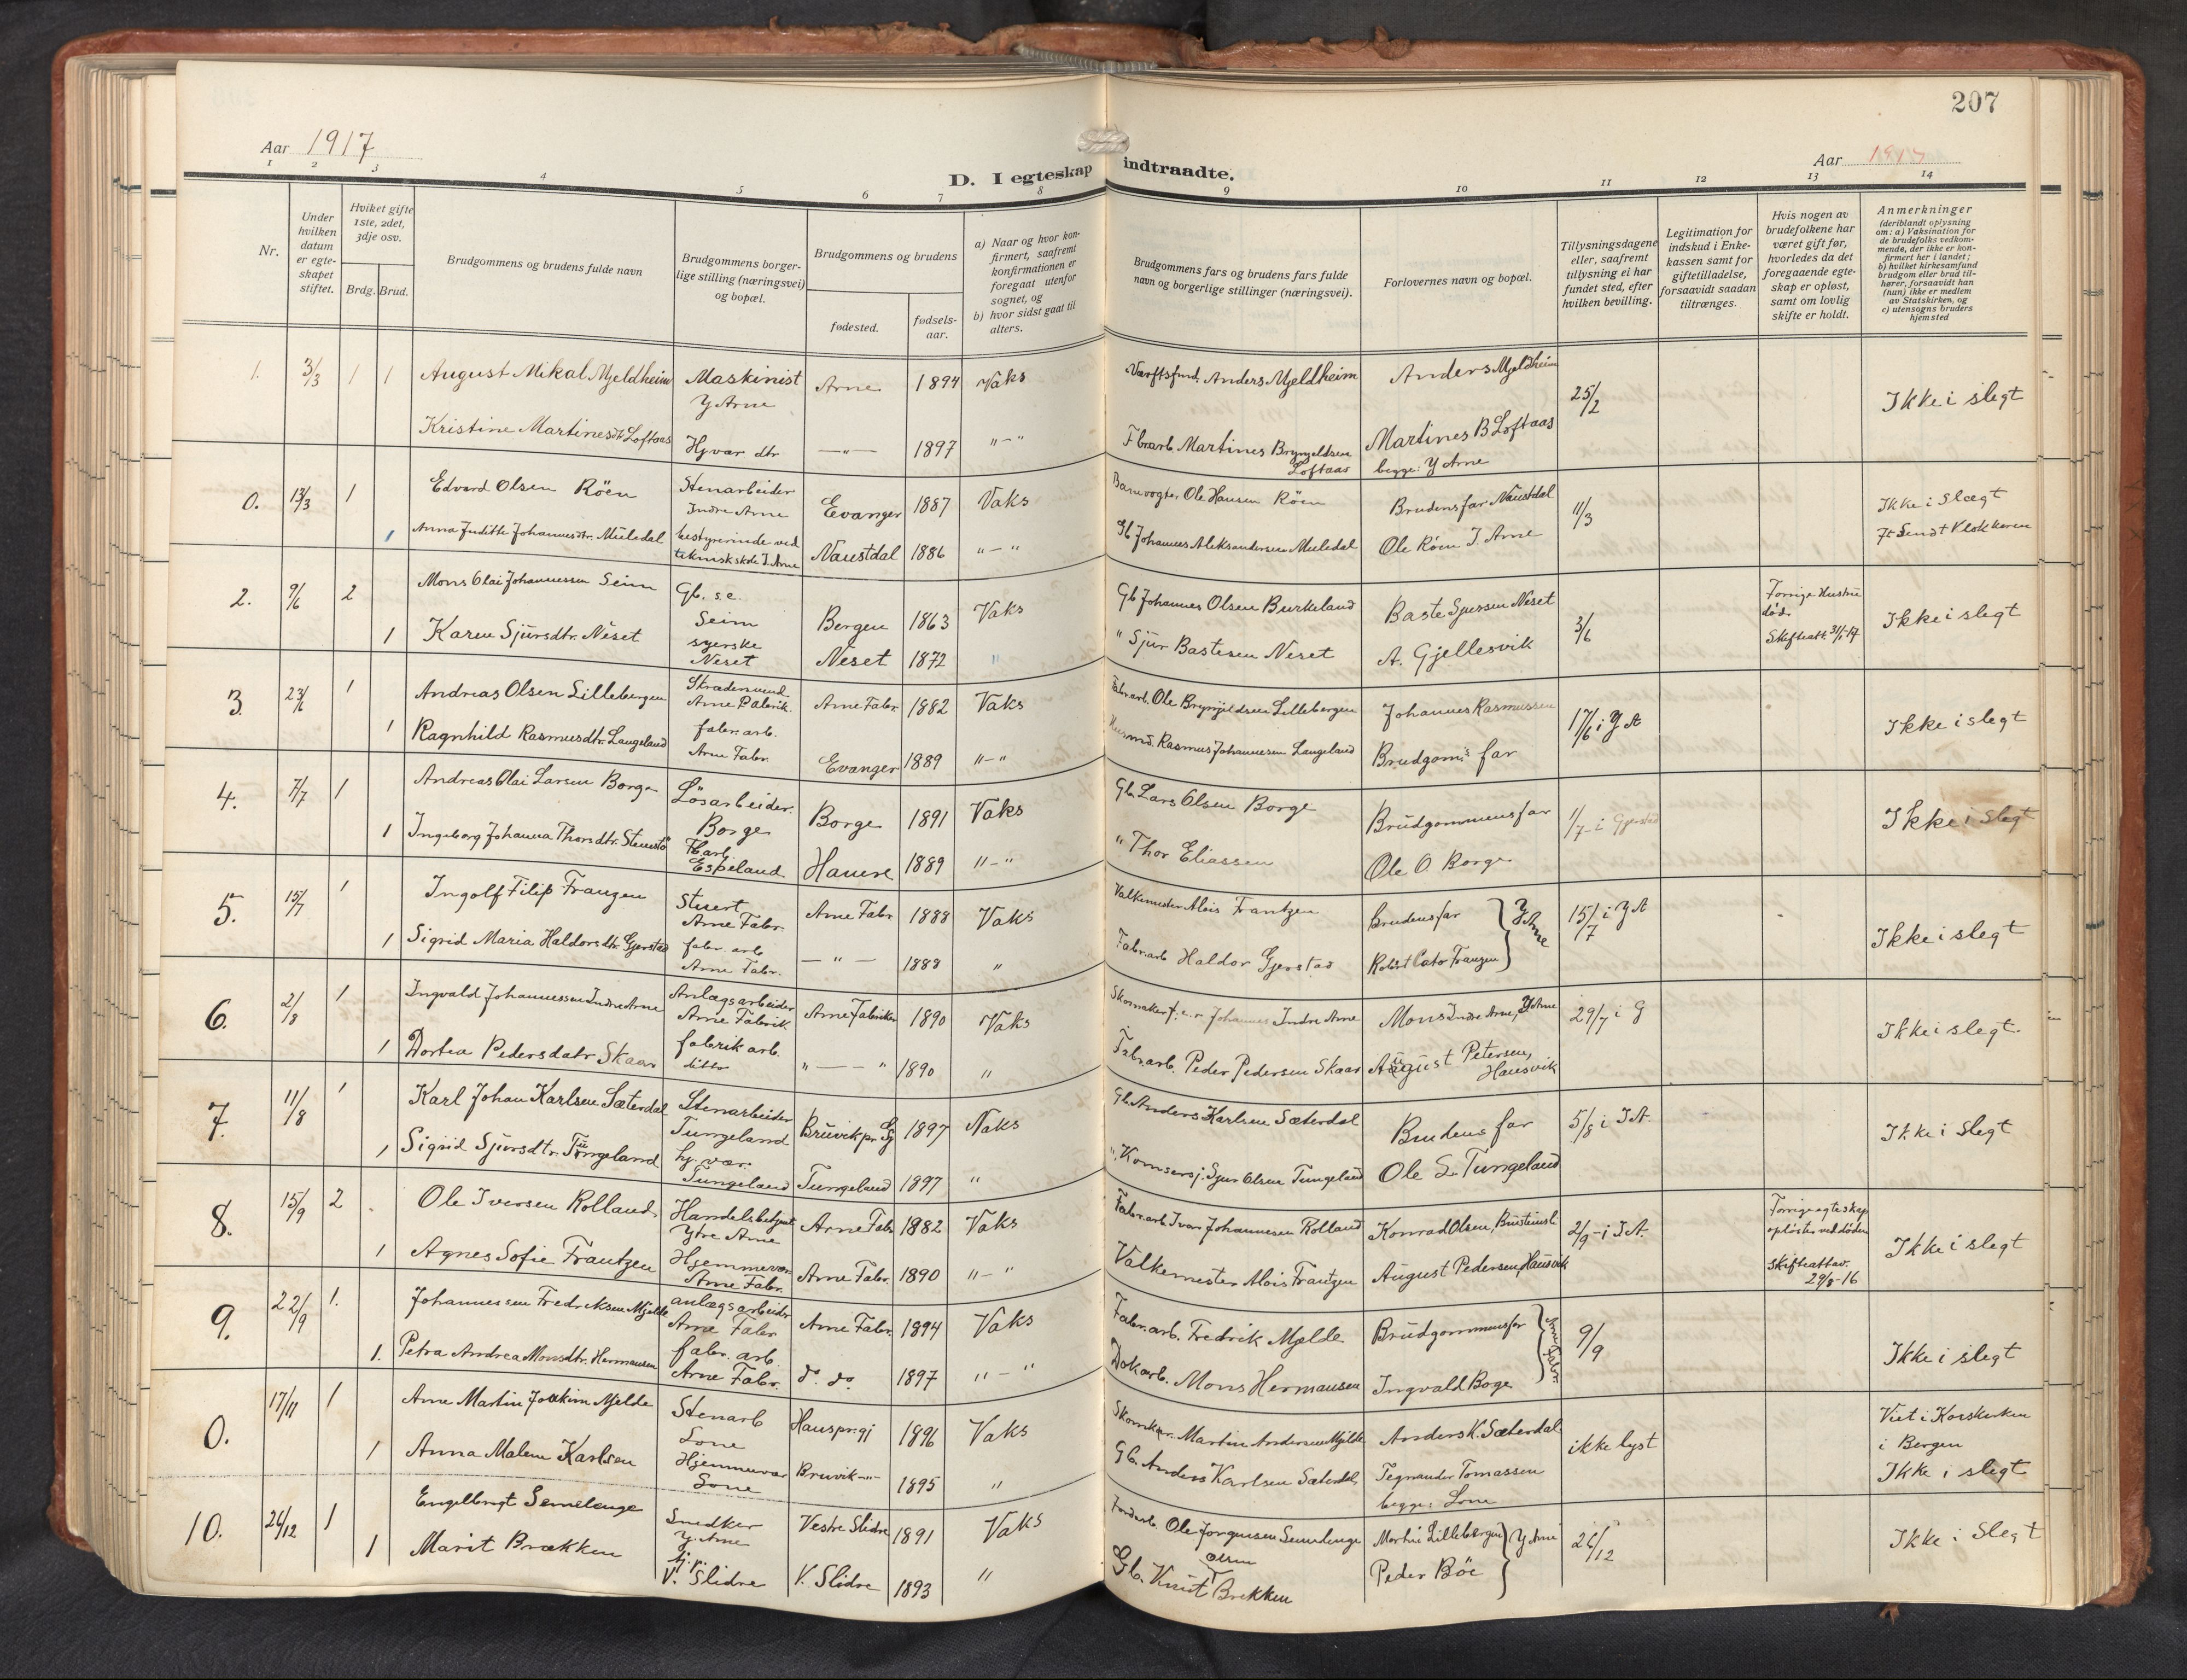 207
Aar 1917
Aar 1917
D. I egteskap indtraadte.
1 2 3 4 5 6 7 8 9 10 11 12 13 14
Nr.
Under hvilken datum er egteskapet stiftet.
Hviket gifte 1ste, 2det, 3dje osv.
Brdg. Brud.
Brudgommens og brudens fulde navn
Brudgommens borgerlige stilling (næringsvei) og bopæl.
Brudgommens og brudens
fødested.
fødselsaar.
a) Naar og hvor konfirmert, saafremt konfirmationen er foregaat utenfor sognet, og
b) hvor sidst gaat til alters.
Brudgommens fars og brudens fars fulde navn og borgerlige stillinger (næringsvei).
Forlovernes navn og bopæl.
Tillysningsdagene eller, saafremt tillysning ei har fundet sted, efter hvilken bevilling.
Legitimation for indskud i Enkekassen samt for giftetilladelse, forsaavidt saadan tiltrænges.
Hvis nogen av brudefolkene har været gift før, hvorledes da det foregaaende egteskap er opløst, samt om lovlig skifte er holdt.
Anmerkninger
(deriblandt oplysning om: a) Vaksination for de brudefolks vedkommende, der ikke er konfirmert her i landet; b) hvilket kirkesamfund brudgom eller brud tilhører, forsaavidt han (hun) ikke er medlem av Statskirken, og c) utensogns bruders hjemsted
1. 3/3 1 1 August Mikal Mjeldheim Maskinist Y Arne Arne 1894 Vaks Værftsfmd. Anders Mjeldheim Anders Mjeldheim 25/2 Ikke i slegt
Kristine Martinesdtr Loftaas Hjvær dtr —"— 1897 "—" Fbrarb. Martines Brynjeldsen Loftaas Martines B Loftaas begge: Y Arne
0. 13/3 1 Edvard Olsen Röen Stenarbeider Indre Arne Evanger 1887 Vaks Banevogter Ole Hansen Röen Brudens far Naustdal 11/3 Ikke i Slægt
1 Anna Juditte Johannesdtr. Muledal bestyrerinde ved teknisk skole I. Arne Naustdal 1886 "—" Gb Johannes Aleksandersen Muledal Ole Röen I. Arne Sendt Klokkeren
2. 9/6 2 Mons Olai Johannessen Seim Gb. s.e. Seim Bergen 1863 Vaks Gb Johannes Olsen Burkeland Baste Sjursen Neset 3/6 Forrige Hustru död. Skifteatt. 31/5-17 Ikke i slegt
1 Karen Sjursdtr. Neset syerske Neset Neset 1872 " " Sjur Bastesen Neset A. Gjellesvik
3. 23/6 1 Andreas Olsen Lillebergen Skrædersvend Arne Fabrik. Arne Fabr. 1882 Vaks Fabrarb. Ole Brynjeldsen Lillebergen Johannes Rasmussen 17/6 i Y A Ikke i slegt
1 Ragnhild Rasmusdtr. Langeland fabr. arb. Arne Fabr. Evanger 1889 "—" Husmd. Rasmus Johannesen Langeland Brudgoms far
4. 7/7 1 Andreas Olai Larsen Borge Lösarbeider. Borge Borge 1891 Vaks Gb. Lars Olsen Borge Brudgommens far 1/7 - i Gjerstad Ikke i slegt
1 Ingeborg Johanna Thorsdtr. Stenstö Fbarb Espeland Hauere 1889 "—" " Thor Eliassen Ole O. Borge
5. 15/7 1 Ingolf Filip Franzen Stuert Arne Fabr. Arne Fabr 1888 Vaks Valkemester Alois Frantzen Brudens far Y Arne 15/7 i Y A Ikke i slegt
1 Sigrid Maria Haldorsdtr. Gjerstad fabr. arb Arne Fabr. —"— 1888 " Fabr.arb Haldor Gjerstad Robert Cato Franzen
6. 2/8 1 Ingvald Johannessen Indre Arne Anlægsarbeider Arne Fabrik. Arne Fabriker 1890 Vaks Skomaker Johannes Indre Arne Mons Indre Arne, Y Arne 29/7 i G Ikke i slegt.
1 Dortea Pedersdatr Skaar fabrik arb. ditto "——" 1890 " Fabr.arb. Peder Pedersen Skaar August Petersen, Hausvik
7. 11/8 1 Karl Johan Karlsen Sæterdal Stenarbeider Tungeland Bruvik pr. Gj 1897 Vaks Gb. Anders Karlsen Sæterdal Brudens far 5/8 i I A. Ikke i slegt
1 Sigrid Sjursdtr. Tungeland hj. vær. Tungeland Tungeland 1897 " " Sjur Olsen Tungeland Ole S. Tungeland
8. 15/9 2 Ole Iversen Rolland Handelsbetjent Ytre Arne Arne Fabr 1882 Vaks Fabr.arb Iver Johannesen Rolland Konrad Olsen, 2/9 - i I A. Forrige egteskap opløst ved døden Skifteattav. 29/8-16 Ikke i slegt
1 Agnes Sofie Frantzen Hjemmevær. Arne Fabr. Arne Fabr. 1890 "—" Valkemester Alois Frantzen August Pedersen, Hausvik
9. 22/9 1. Johannessen Fredriksen Mjelde anlægsarbeider Arne Fabr Arne Fabr. 1894 Vaks Fabr.arb. Fredrik Mjelde Brudgommens far Arne Fabr. 9/9 Ikke i slegt
1. Petra Andrea Monsdtr. Hermansen fabr. arb. Arne Fabr. d. do. 1897 "— " Dokarb. Mons Hermansen Ingvald Boge
0. 17/11 1 Arne Martin Joakim Mjelde Stenarb Lone Haus pr.gj 1896 Vaks Skomker. Martin Andersen Mjelde Anders K. Sæterdal ikke lyst Viet i Korskirken i Bergen
1 Anna Malene Karlsen Hjemmevær Lone Bruvik —"— 1895 " Gb. Anders Karlsen Sæterdal Tegnander Tomassen begge: Lone Ikke i slegt
10. 26/12 1 Engelbrigt Semelenge Snedker Y. Arne Vestre Slidre 1891 Vaks Ole Jörgensen Semelenge Martin Lillebergen Y Arne 26/12 Ikke i slegt
1 Marit Brækken hj. p. V. Slidre V. Slidre 1893 " Gb. Knut Olsen Brekken Peder Böe